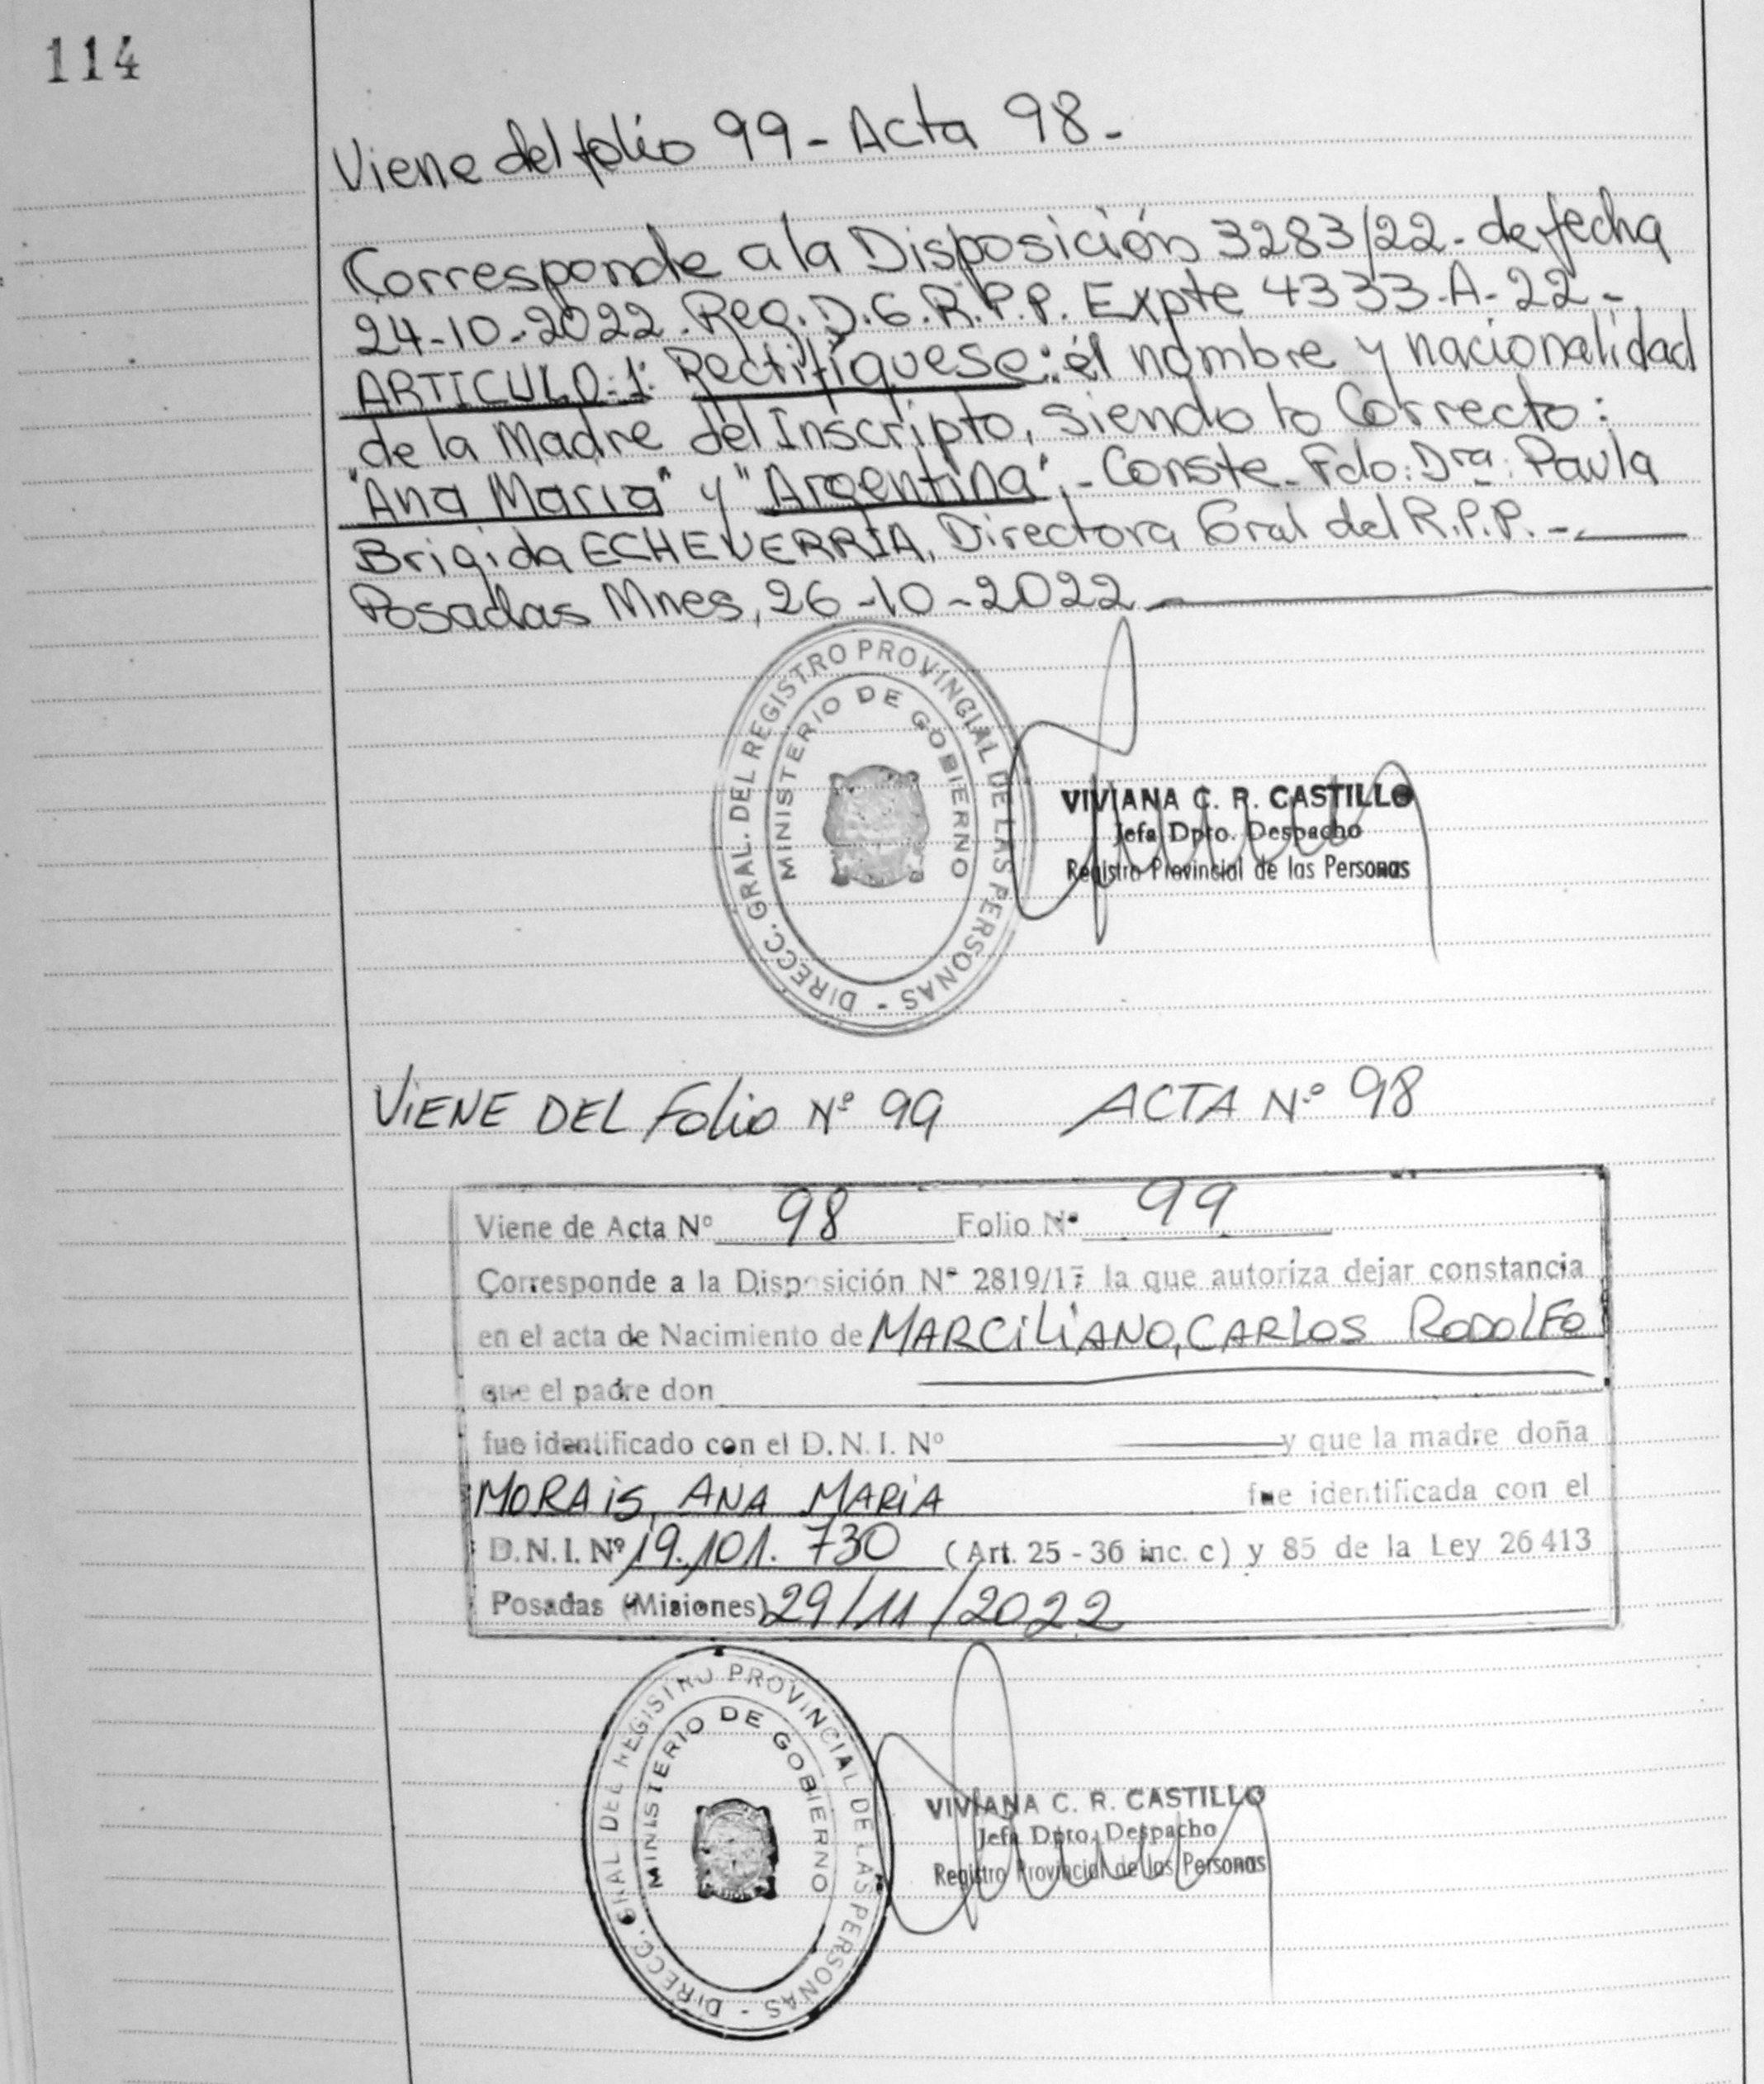 114
Viene del folio 99 - Acta 98 -
Corresponde a la Disposición 3283/22 - de fecha
24-10-2022. Reg. D.G.R.P.P. Expte 4333-A-22 -
ARTICULO: 1: Rectifíquese: el nombre y nacionalidad
de la Madre del Inscripto, siendo lo Correcto:
"Ana Maria" y "Argentina". - Conste - Fdo: Dra: Paula
Brigida ECHEVERRIA, Directora Gral del R.P.P. -
Posadas Mnes, 26-10-2022
DIRECC. GRAL. DEL REGISTRO PROVINCIAL DE LAS PERSONAS -
MINISTERIO DE GOBIERNO
VIVIANA C. R. CASTILLO
Jefa Dpto. Despacho
Registro Provincial de las Personas
VIENE DEL Folio Nº 99 ACTA Nº 98
Viene de Acta Nº 98 Folio Nº 99
Corresponde a la Disposición Nº 2819/17 la que autoriza dejar constancia
en el acta de Nacimiento de MARCILIANO, CARLOS RODOLFO
que el padre don
fue identificado con el D.N.I. Nº y que la madre doña
MORAIS, ANA MARIA fue identificada con el
D.N.I. Nº 19.101.730 (Art. 25 - 36 inc. c) y 85 de la Ley 26413
Posadas (Misiones) 29/11/2022
DIRECC. GRAL DEL REGISTRO PROVINCIAL DE LAS PERSONAS -
MINISTERIO DE GOBIERNO
VIVIANA C. R. CASTILLO
Jefa Dpto. Despacho
Registro Provincial de las Personas